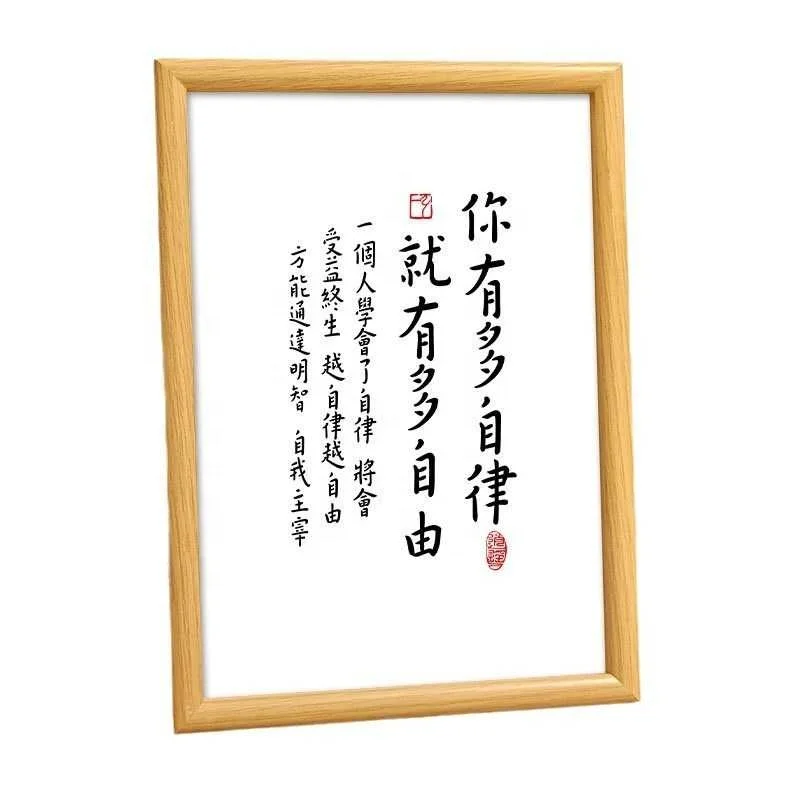 你有多自律
就有多自由
一個人學會了自律 將會
受益終生 越自律越自由
方能通達明智 自我主宰